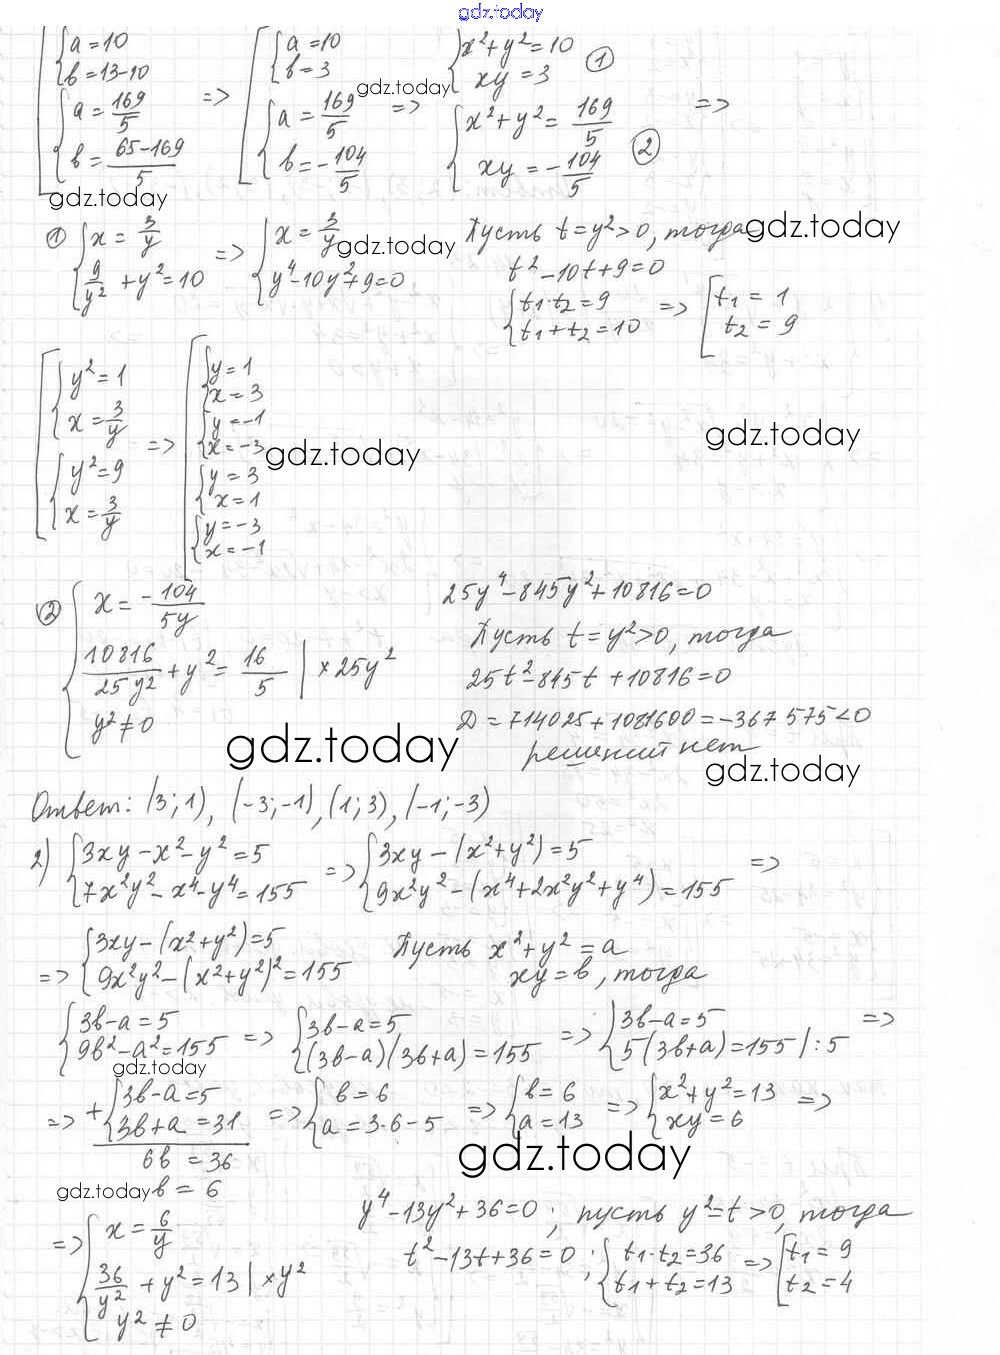 gdz.today
[ { a = 10; b = 13-10 } { a = 169/5; b = (65-169)/5 } => [ { a = 10; b = 3 } { a = 169/5; b = -104/5 } => { x² + y² = 10; xy = 3 ① { x² + y² = 169/5; xy = -104/5 ② =>
gdz.today
gdz.today
① { x = 3/y; 9/y² + y² = 10 => { x = 3/y; y⁴ - 10y² + 9 = 0
gdz.today
Пусть t = y² > 0, тогда
gdz.today
t² - 10t + 9 = 0
{ t₁·t₂ = 9; t₁ + t₂ = 10 => [ t₁ = 1; t₂ = 9
[ { y² = 1; x = 3/y } { y² = 9; x = 3/y } => [ { y = 1; x = 3 } { y = -1; x = -3 } { y = 3; x = 1 } { y = -3; x = -1 }
gdz.today
gdz.today
② { x = -104/5y; 10816/25y² + y² = 16/5 | × 25y²; y² ≠ 0
25y⁴ - 845y² + 10816 = 0
Пусть t = y² > 0, тогда
25t² - 845t + 10816 = 0
D = 714025 + 1081600 = -367575 < 0
решений нет
gdz.today
gdz.today
Ответ: (3; 1), (-3; -1), (1; 3), (-1; -3)
2) { 3xy - x² - y² = 5; 7x²y² - x⁴ - y⁴ = 155 => { 3xy - (x² + y²) = 5; 9x²y² - (x⁴ + 2x²y² + y⁴) = 155 =>
=> { 3xy - (x² + y²) = 5; 9x²y² - (x² + y²)² = 155
Пусть x² + y² = a
xy = b, тогда
{ 3b - a = 5; 9b² - a² = 155 => { 3b - a = 5; (3b - a)(3b + a) = 155 => { 3b - a = 5; 5(3b + a) = 155 | : 5 =>
gdz.today
=> + { 3b - a = 5; 3b + a = 31 => { b = 6; a = 3·6 - 5 => { b = 6; a = 13 => { x² + y² = 13; xy = 6 =>
6b = 36
b = 6
gdz.today
gdz.today
=> { x = 6/y; 36/y² + y² = 13 | × y²; y² ≠ 0
y⁴ - 13y² + 36 = 0; пусть y² = t > 0, тогда
t² - 13t + 36 = 0; { t₁·t₂ = 36; t₁ + t₂ = 13 => [ t₁ = 9; t₂ = 4